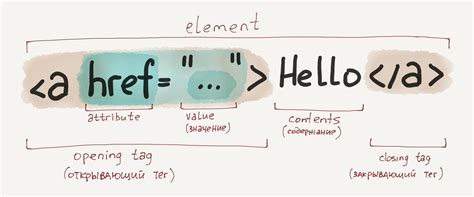 element
<a href="...">Hello</a>
attribute
value
(значение)
contents
(содержание)
opening tag
(открывающий тег)
closing tag
(закрывающий тег)